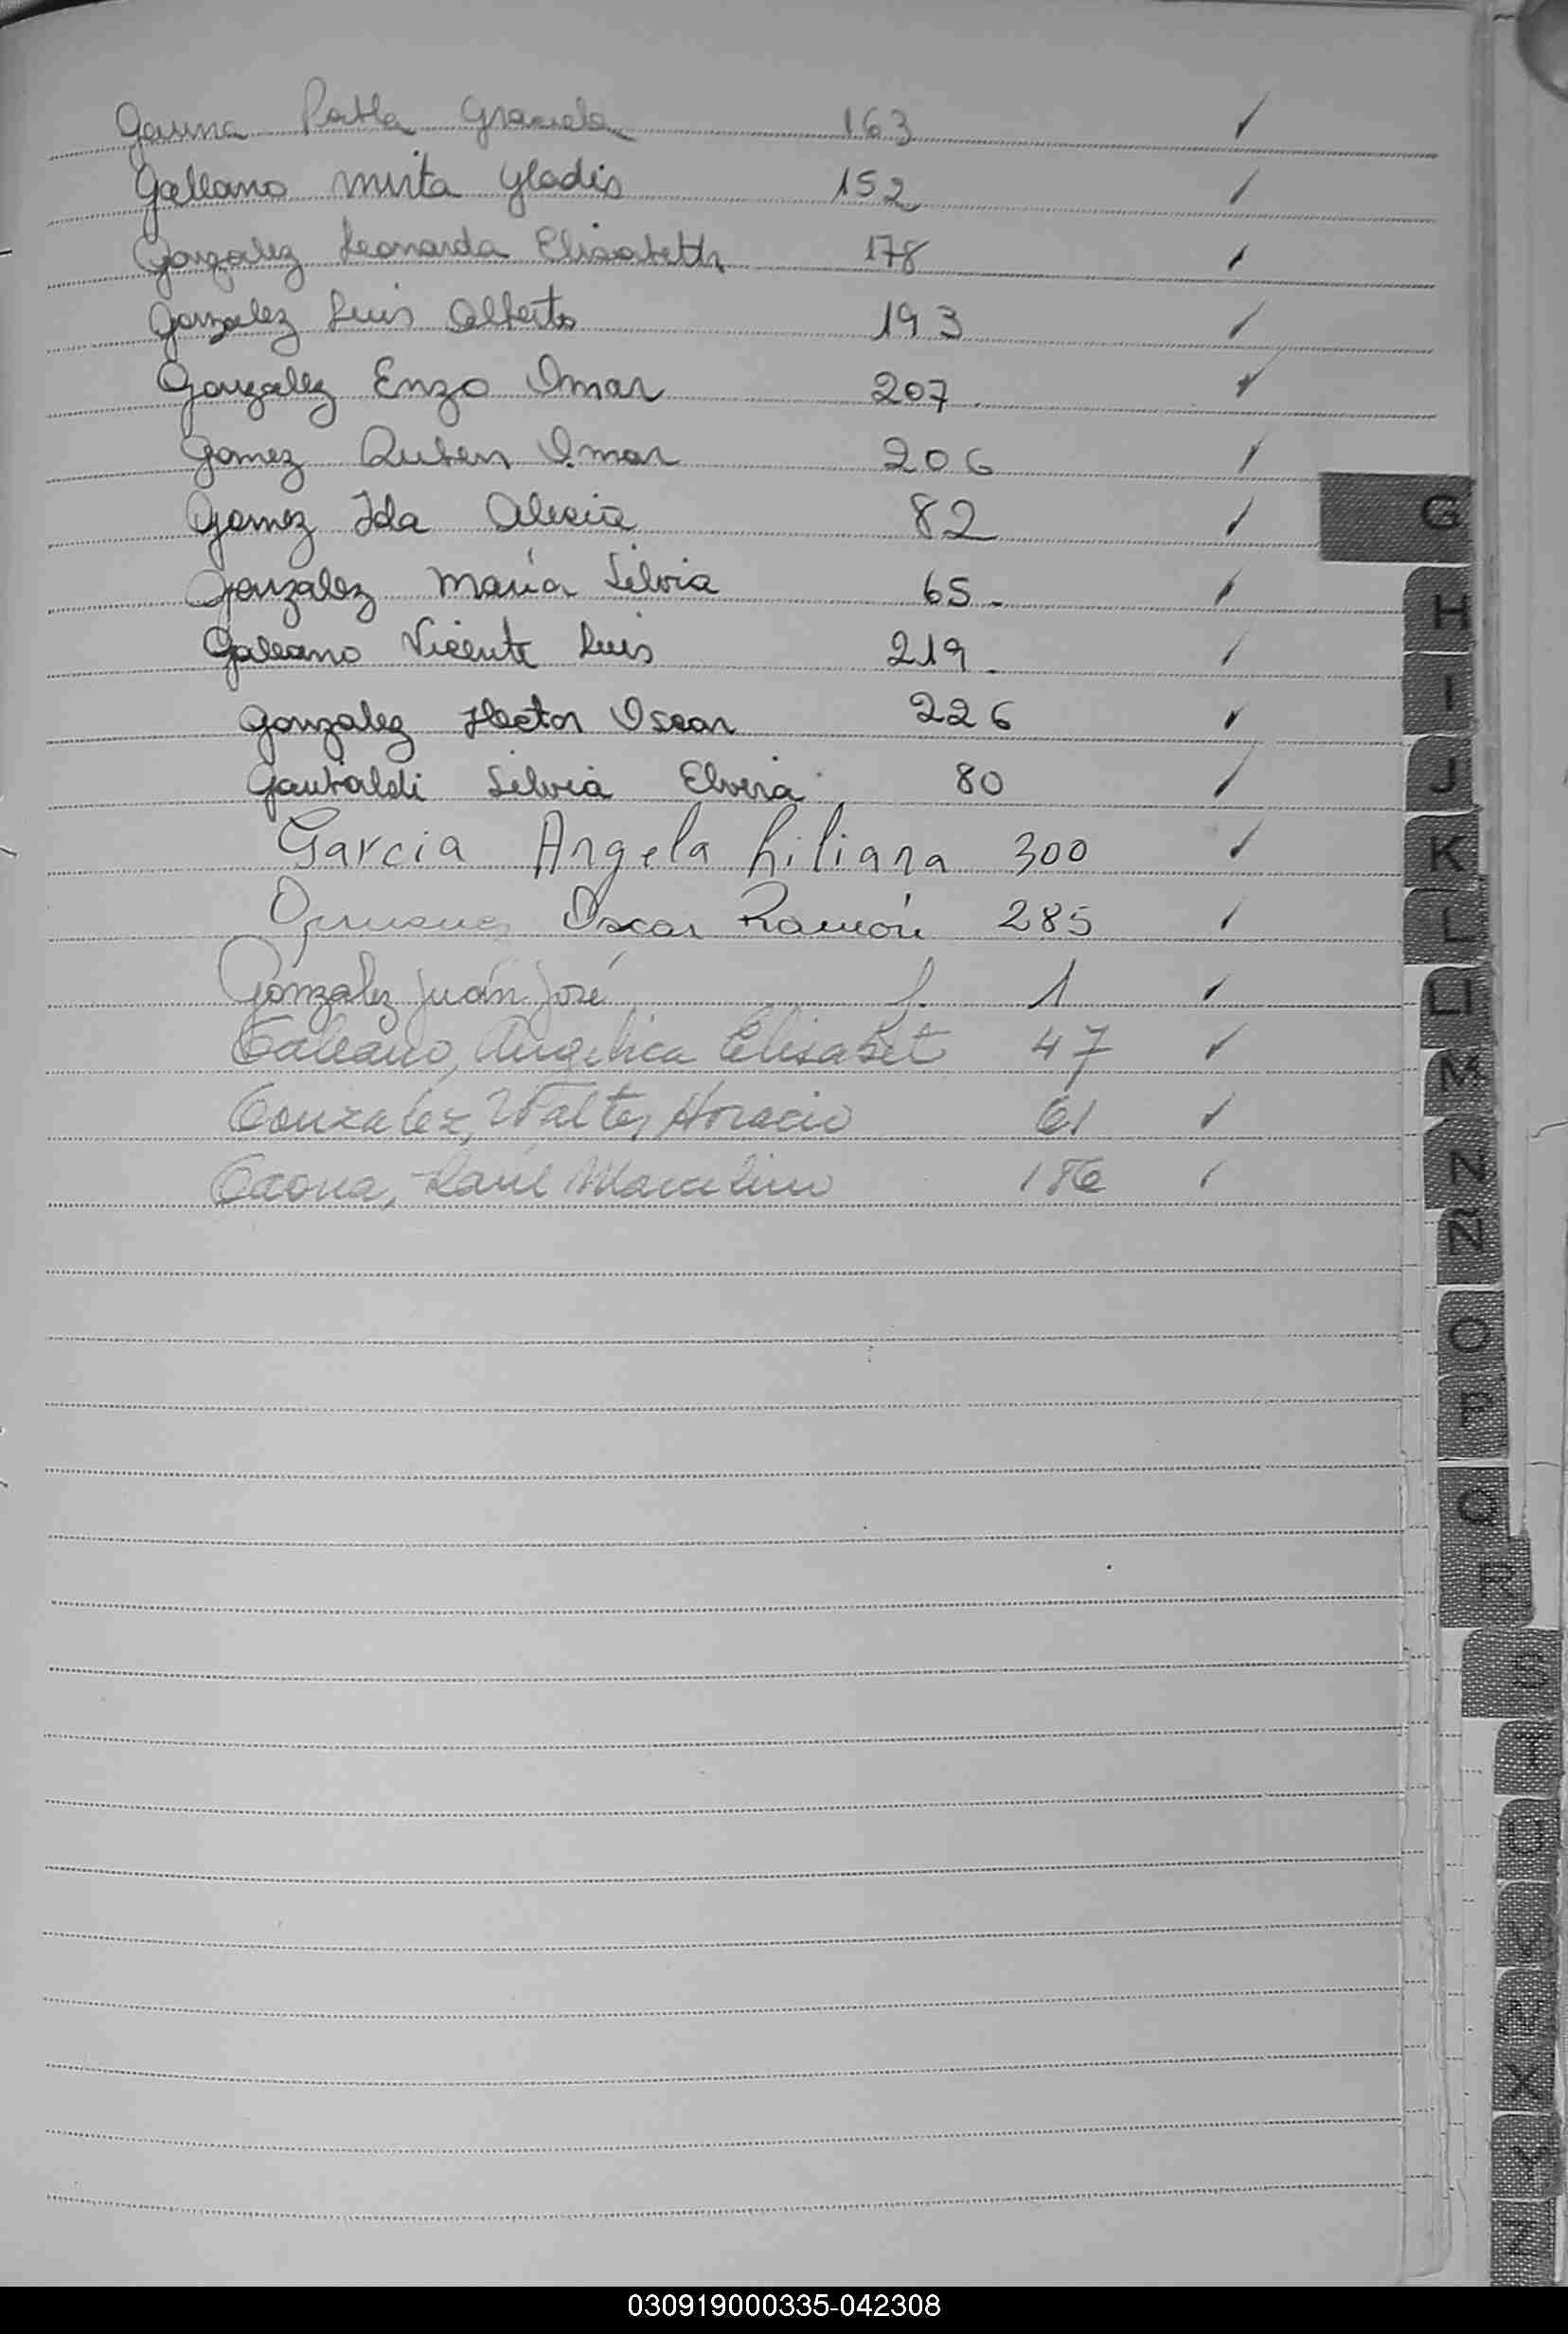 Gauna Pabla Graciela 163 ✓
Galeano Mirta Gladis 152 ✓
Gonzalez Leonarda Elisabeth 178 ✓
Gonzalez Luis Alberto 193 ✓
Gonzalez Enzo Omar 207 ✓
Gomez Ruben Omar 206 ✓
Gomez Ida Alecia 82 ✓
Gonzalez María Silvia 65 ✓
Galeano Vicente Luis 219 ✓
Gonzalez Hector Oscar 226 ✓
Garibaldi Silvia Elvira 80 ✓
Garcia Angela Liliana 300 ✓
Oscar Ramón 285 ✓
Gonzalez Juán José 1 ✓
Galeano, Angelica Elisabet 47 ✓
Gonzalez, Walter Horacio 61 ✓
Gaona, Raúl Marcelino 186 ✓
G
H
I
J
K
L
LL
M
N
Ñ
O
P
Q
R
S
T
U
V
X
Y
Z
030919000335-042308